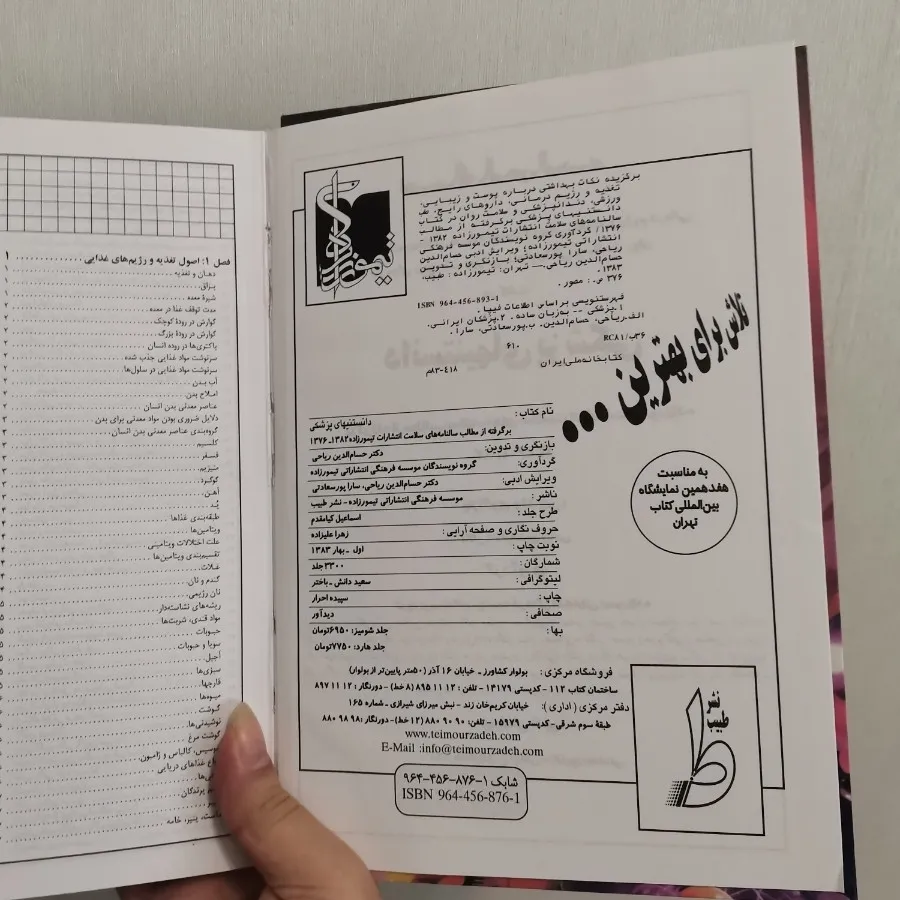 تیمورزاده
برگزیده نکات بهداشتی درباره پوست و زیبایی،
تغذیه و رژیم درمانی، داروهای رایج، طب
ورزشی، دندانپزشکی و سلامت روان در کتاب
دانستنیهای پزشکی برگرفته از مطالب
سالنامه‌های سلامت انتشارات تیمورزاده ۱۳۸۲ -
۱۳۷۶/ گردآوری گروه نویسندگان موسسه فرهنگی
انتشاراتی تیمورزاده؛ ویرایش ادبی حسام‌الدین
ریاحی، سارا پورسعادتی؛ بازنگری و تدوین
حسام‌الدین ریاحی.— تهران: تیمورزاده: طبیب،
۱۳۸۳.
۳۷۶ ص.: مصور.
ISBN 964-456-893-1
فهرستنویسی براساس اطلاعات فیپا.
۱.پزشکی -- به‌زبان ساده. ۲.پزشکان ایرانی.
الف.ریاحی، حسام‌الدین. ب.پورسعادتی، سارا.
RC۸۱/ب۳۶
۶۱۰
کتابخانه‌ملی‌ایران
۸۳-۴۱۸م
تلاش برای بهترین ...
نام کتاب: دانستنیهای پزشکی
برگرفته از مطالب سالنامه‌های سلامت انتشارات تیمورزاده ۱۳۸۲ـ۱۳۷۶
بازنگری و تدوین: دکتر حسام‌الدین ریاحی
گردآوری: گروه نویسندگان موسسه فرهنگی انتشاراتی تیمورزاده
ویرایش ادبی: دکتر حسام‌الدین ریاحی، سارا پورسعادتی
ناشر: موسسه فرهنگی انتشاراتی تیمورزاده - نشر طبیب
طرح جلد: اسماعیل کیامقدم
حروف نگاری و صفحه آرایی: زهرا علیزاده
نوبت چاپ: اول ـ بهار ۱۳۸۳
شمارگان: ۳۳۰۰ جلد
لیتوگرافی: سعید دانش ـ باختر
چاپ: سپیده احرار
صحافی: دیدآور
بها: جلد شومیز: ۶۹۵۰تومان
جلد هارد: ۷۷۵۰تومان
به مناسبت
هفدهمین نمایشگاه
بین‌المللی کتاب
تهران
فروشگاه مرکزی: بولوار کشاورز ـ خیابان ۱۶ آذر (۵۰متر پایین‌تر از بولوار)
ساختمان کتاب ۱۱۲ - کدپستی ۱۴۱۷۹ - تلفن: ۱۲ ۱۱ ۸۹۵ (۸ خط) - دورنگار: ۱۲ ۱۱ ۸۹۷
دفتر مرکزی (اداری): خیابان کریم‌خان زند - نبش میرزای شیرازی ـ شماره ۱۶۵
طبقه سوم شرقی- کدپستی ۱۵۹۷۹ - تلفن: ۹۰ ۹۰ ۸۸۰ (۱۲ خط)- دورنگار: ۹۸ ۹۸ ۸۸۰
www.teimourzadeh.com
E-Mail :info@teimourzadeh.com
شابک ۱-۸۷۶-۴۵۶-۹۶۴
ISBN 964-456-876-1
نشر
طبیب
فصل ۱: اصول تغذیه و رژیم‌های غذایی ۱
دهان و تغذیه ۱
بزاق ۱
شیرهٔ معده ۱
مدت توقف غذا در معده ۲
گوارش در رودهٔ کوچک ۲
گوارش در رودهٔ بزرگ ۲
باکتری‌ها در روده انسان ۲
سرنوشت مواد غذایی جذب شده ۲
سرنوشت مواد غذایی در سلول‌ها ۲
آب بدن ۲
املاح بدن ۲
عناصر معدنی بدن انسان ۲
دلایل ضروری بودن مواد معدنی برای بدن ۳
گروه‌بندی عناصر معدنی بدن انسان ۳
کلسیم ۳
فسفر ۳
منیزیم ۳
گوگرد ۳
آهن ۳
یُد ۴
طبقه‌بندی غذاها ۴
ویتامین‌ها ۴
علت اختلالات ویتامینی ۴
تقسیم‌بندی ویتامین‌ها ۴
غلات ۴
گندم و نان ۴
نان رژیمی ۵
ریشه‌های نشاسته‌دار ۵
مواد قندی، شربت‌ها ۵
حبوبات ۵
سویا و حبوبات ۵
آجیل
سبزی‌ها
قارچها
میوه‌ها
گوشت
نوشیدنی‌ها
گوشت مرغ
سوسیس، کالباس و ژامبون
غذاهای دریایی
پرندگان
ماست، پنیر، خامه